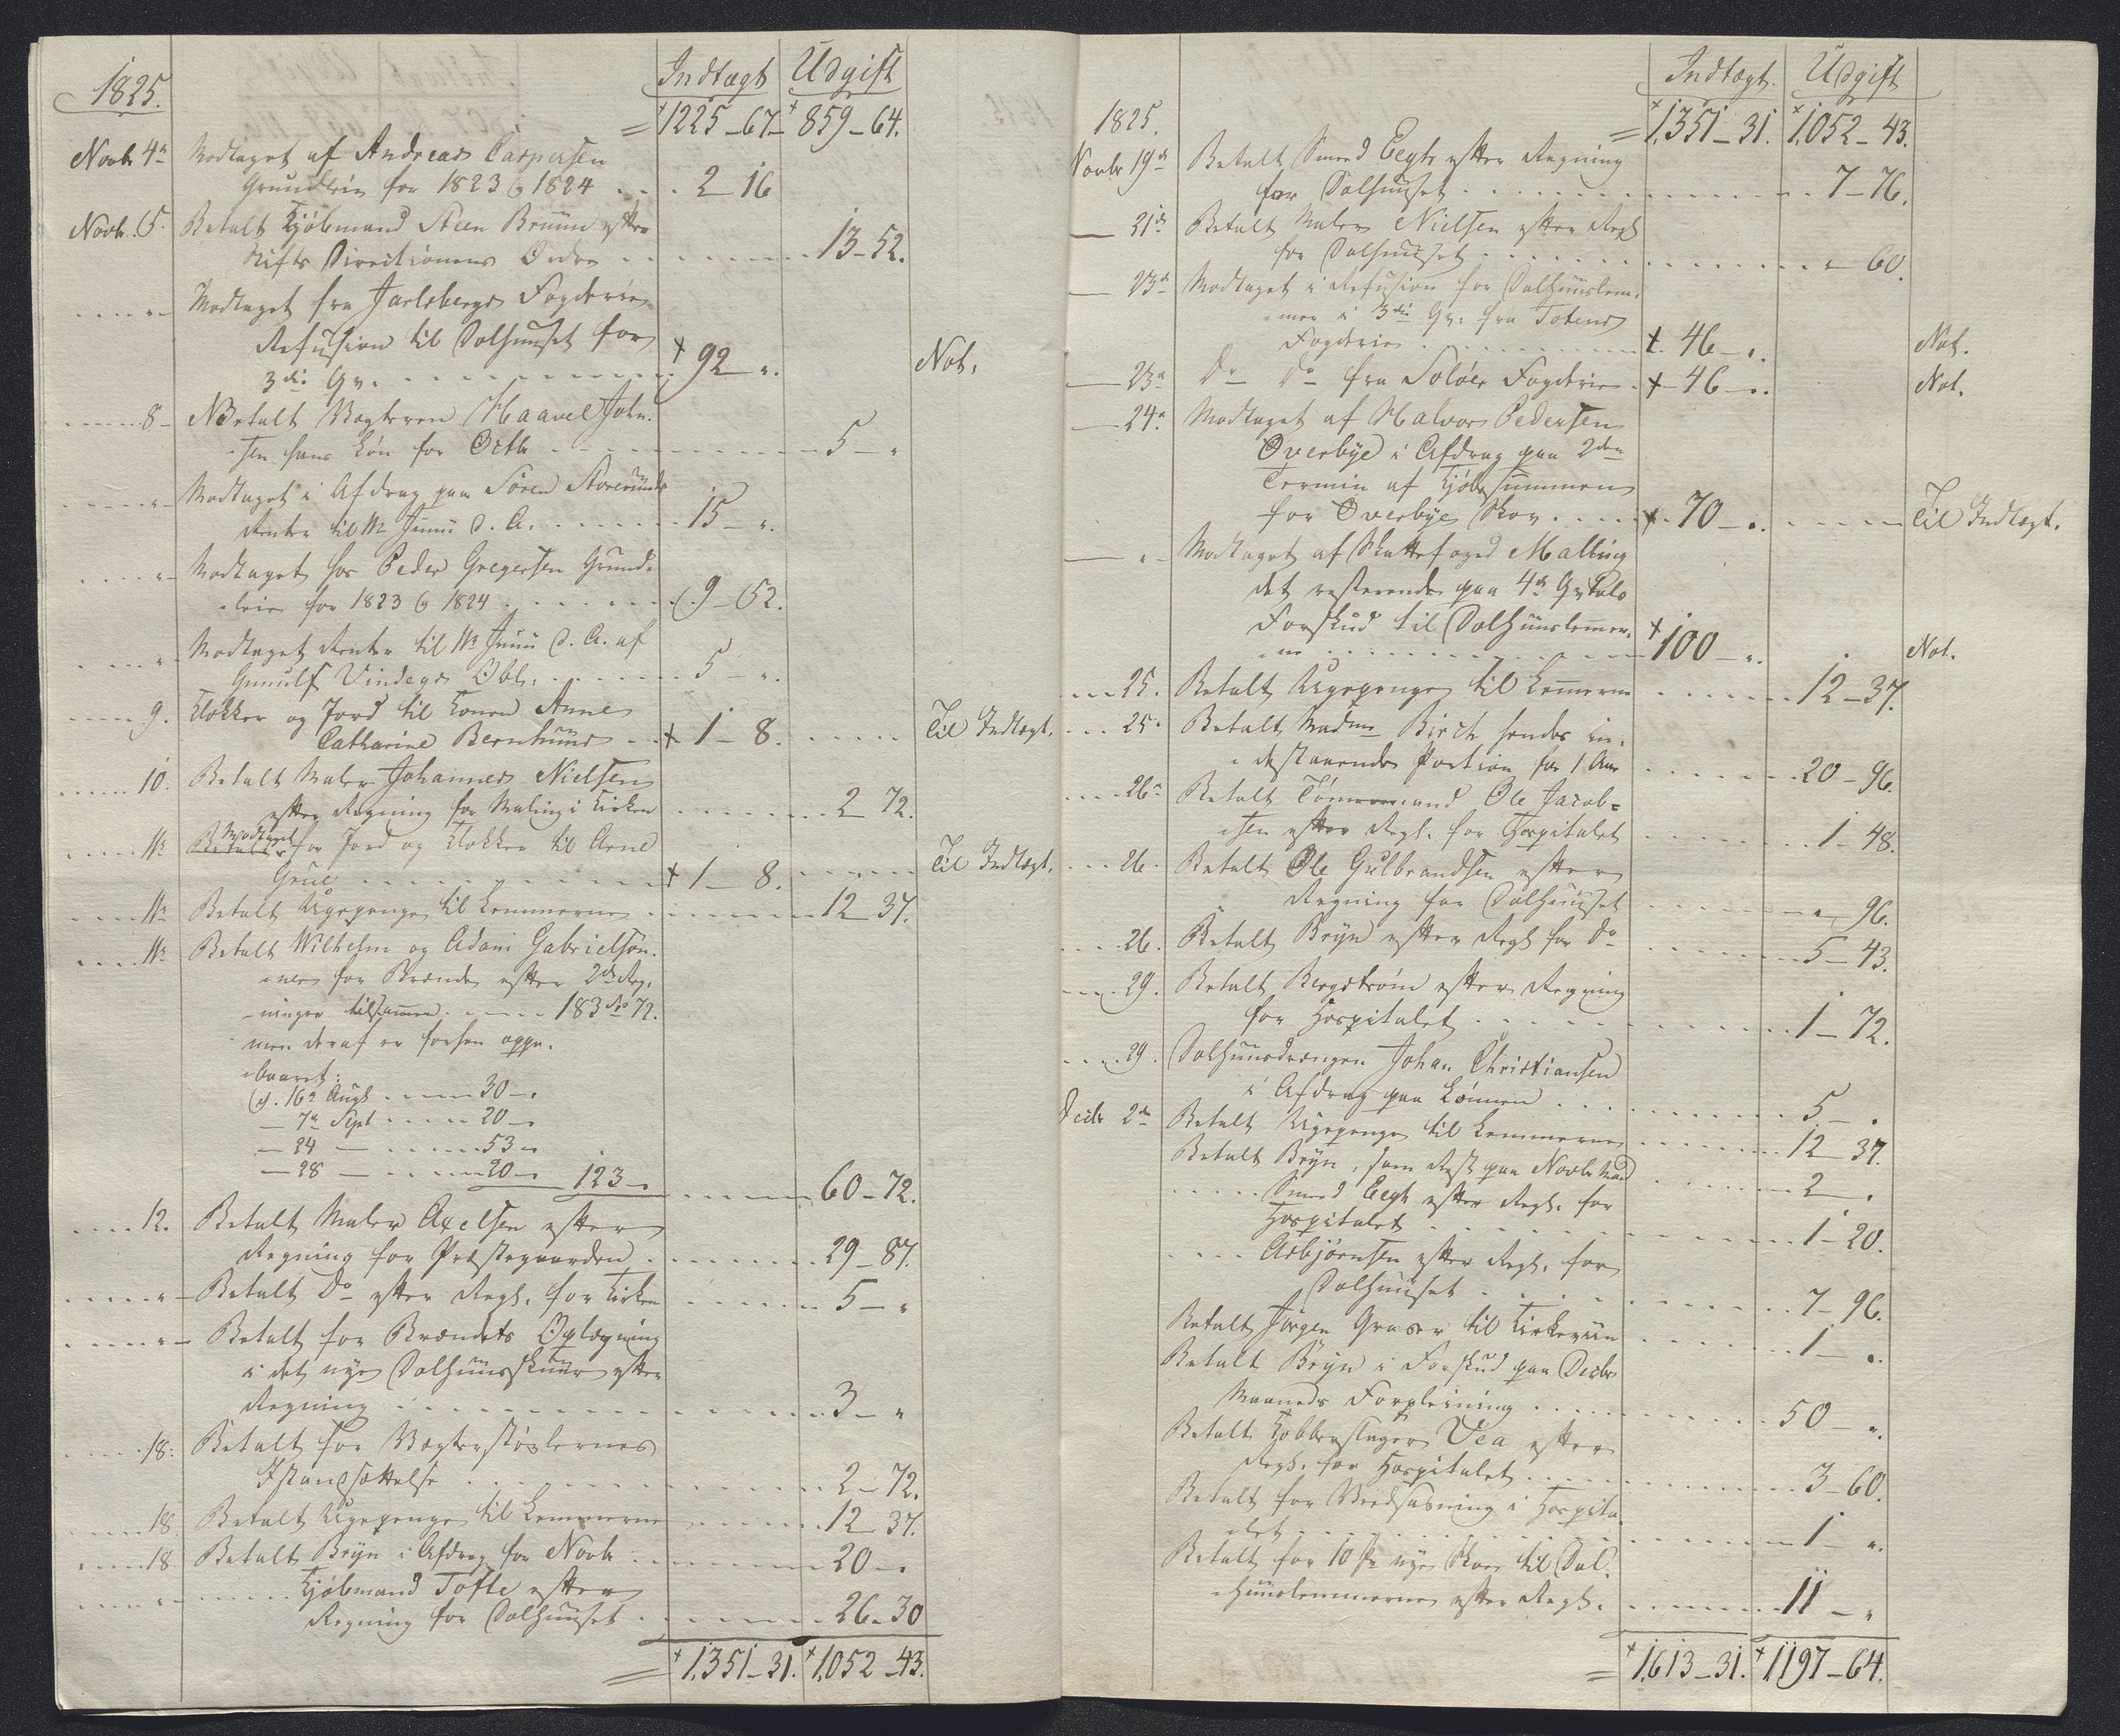 1825.
Indtægt Udgift
= 1225-67. 859-64.
Novbr 4de Modtaget af Andreas Caspersen
Grundleie for 1823 & 1824 . . . 2 16
Novbr. 5. Betalt Kjøbmand Steen Bruun efter
Stifts Directionens Ordre . . . 13-52.
" Modtaget fra Jarlsbergs Fogderie
Refusion til Dolhuuset for
3die Qv. . . . + 92 ". Not.
8 Betalt Vægteren Haavel John-
sen hans Løn for Octbr . . . 5 - "
" Modtaget i Afdrag paa Søren
Renter til 11te Junii d. A. . . . 15 - ".
" Modtaget hos Peder Gregersen Grund-
leie for 1823 & 1824 . . . 9-62.
" Modtaget Renter til 11te Junii d. A. af
Gunulf Vindegs Obl: . . . 5 - ".
9. Klokker og Jord til Konen Anne
Catharine Bernhuus . . + 1-8. . . . Til Indtægt.
10. Betalt Maler Johannes Nielsen
efter Regning for Maling i Kirken . . . 2 72.
11te Betalt Modtaget for Jord og Klokker til Arne
Grue . . . + 1-8. . . . Til Indtægt.
11te Betalt Ugepenge til Lemmerne . . . 12-37.
11te Betalt Wilhelm og Adam Gabrielsøn-
ner for Brænde efter 2de Reg-
ninger tilsammen . . . 183 72.
men deraf er forhen oppe-
baaret:
d. 16de Augt . . . 30 - "
- 7de Sept . . . 20 - "
- 24 - . . . 53 "
- 28 - . . . 20 - " 123 - " . . . 60-72.
12. Betalt Maler Axelsen efter
Regning for Præstegaarden . . . 29-87.
" Betalt Do efter Regn. for Kirken . . . 5 - "
" Betalt for Brændets Oplægning
i det nye Dolhuusskuur efter
Regning . . . 3 - "
18. Betalt for Vægterstøvlernes
Istandsættelse . . . 2-72.
18 Betalt Ugepenge til Lemmerne . . . 12 37.
18 Betalt Bryn i Afdrag for Novbr . . . 20 - "
" Kjøbmand Tofte efter
Regning for Dolhuuset . . . 26-30
= 1,351-31. 1,052-43.
1825.
Indtægt. Udgift
= 1,351-31. 1,052-43.
Novbr 19de Betalt Smed Eegh efter Regning
for Dolhuuset . . . 7-76.
21de Betalt Maler Nielsen efter Regn
for Dolhuuset . . . " 60.
23de Modtaget i Refusion for Dolhuuslem-
mer i 3die Qv: fra Totens
Fogderie . . . + 46 - ". Not.
23de Do Do fra Soløer Fogderie . + 46 - ". Not.
24de Modtaget af Halvor Pedersen
Overbye i Afdrag paa 2den
Termin af Kjøbesummen
for Overbye Skov . . . + 70 - ". . . . Til Indtægt.
" Modtaget af Skattefoged Malling
det resterende paa 4de Qvtals
Forskud til Dolhuuslemmer-
ne . . . + 100 - ". Not.
25. Betalt Ugepenge til Lemmerne . . . 12-37.
25. Betalt Madme Birch hendes in-
destaaende Portion for 1 Aar . . . 20-96.
26de Betalt Tømmermand Ole Jacob-
sen efter Regn. for Hospitalet . . . 1-48.
26. Betalt Ole Gulbrandsen efter
Regning for Dolhuuset . . . " 96.
26. Betalt Bryn efter Regn for Do . . . 5-43.
29. Betalt Bergstrøm efter Regning
for Hospitalet . . . 1-72.
29. Dolhuusdrengen Johan Christiansen
i Afdrag paa Lønnen . . . 5 - "
Decbr 2den Betalt Ugepenge til Lemmerne . . . 12 37.
Betalt Bryn, som Rest paa Novbr Maad . . . 2 - "
Smed Eegh efter Regn. for
Hospitalet . . . 1-20.
Asbjørnsen efter Regn. for
Dolhuuset . . . 7-96.
Betalt Jørgen Graver til Kirkeviin . . . 1 - ".
Betalt Bryn i Forskud paa Decbr
Maaneds Forpleining . . . 50 - ".
Betalt Kobberslager Vea efter
Regn. for Hospitalet . . . 3-60.
Betalt for Vedsaugning i Hospita-
let . . . 1 - ".
Betalt for 10 Pr nye Skoe til Dol-
huuslemmerne efter Regn. . . . 11 - "
= 1,613-31. 1197-64.